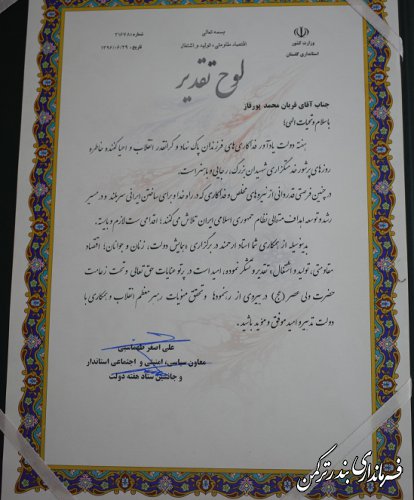 بسمه تعالی
اقتصاد مقاومتی، تولید و اشتغال
وزارت کشور
استانداری گلستان
شماره: ۳۱۶۷۸۱
تاریخ: ۱۳۹۶/۰۶/۲۹
لوح تقدیر
جناب آقای قربان محمد پورقاز
با سلام و تحیات الهی؛
هفته دولت یادآور فداکاری‌های فرزندان پاک نهاد و گرانقدر انقلاب و احیا کننده خاطره
روزهای پرشور خدمتگزاری شهیدان بزرگ، رجایی و باهنر است.
در چنین فرصتی قدردانی از نیروهای مخلص و فداکاری که در راه خدا و برای ساختن ایرانی سربلند و در مسیر
رشد و توسعه اهداف متعالی نظام جمهوری اسلامی ایران تلاش می‌کنند؛ اقدامی ست لازم و بایسته.
بدینوسیله از همکاری شما استاد ارجمند در برگزاری همایش دولت، زنان و جوانان؛ اقتصاد
مقاومتی، تولید و اشتغال، تقدیر و تشکر نموده، امید است در پرتو عنایات حق تعالی و تحت زعامت
حضرت ولی عصر (عج) در پیروی از رهنمودها و تحقق منویات رهبر معظم انقلاب و همکاری با
دولت تدبیر و امید موفق و مؤید باشید.
علی اصغر
معاون سیاسی، امنیتی و اجتماعی استاندار
و جانشین ستاد هفته دولت
فرمانداری بندر ترکمن